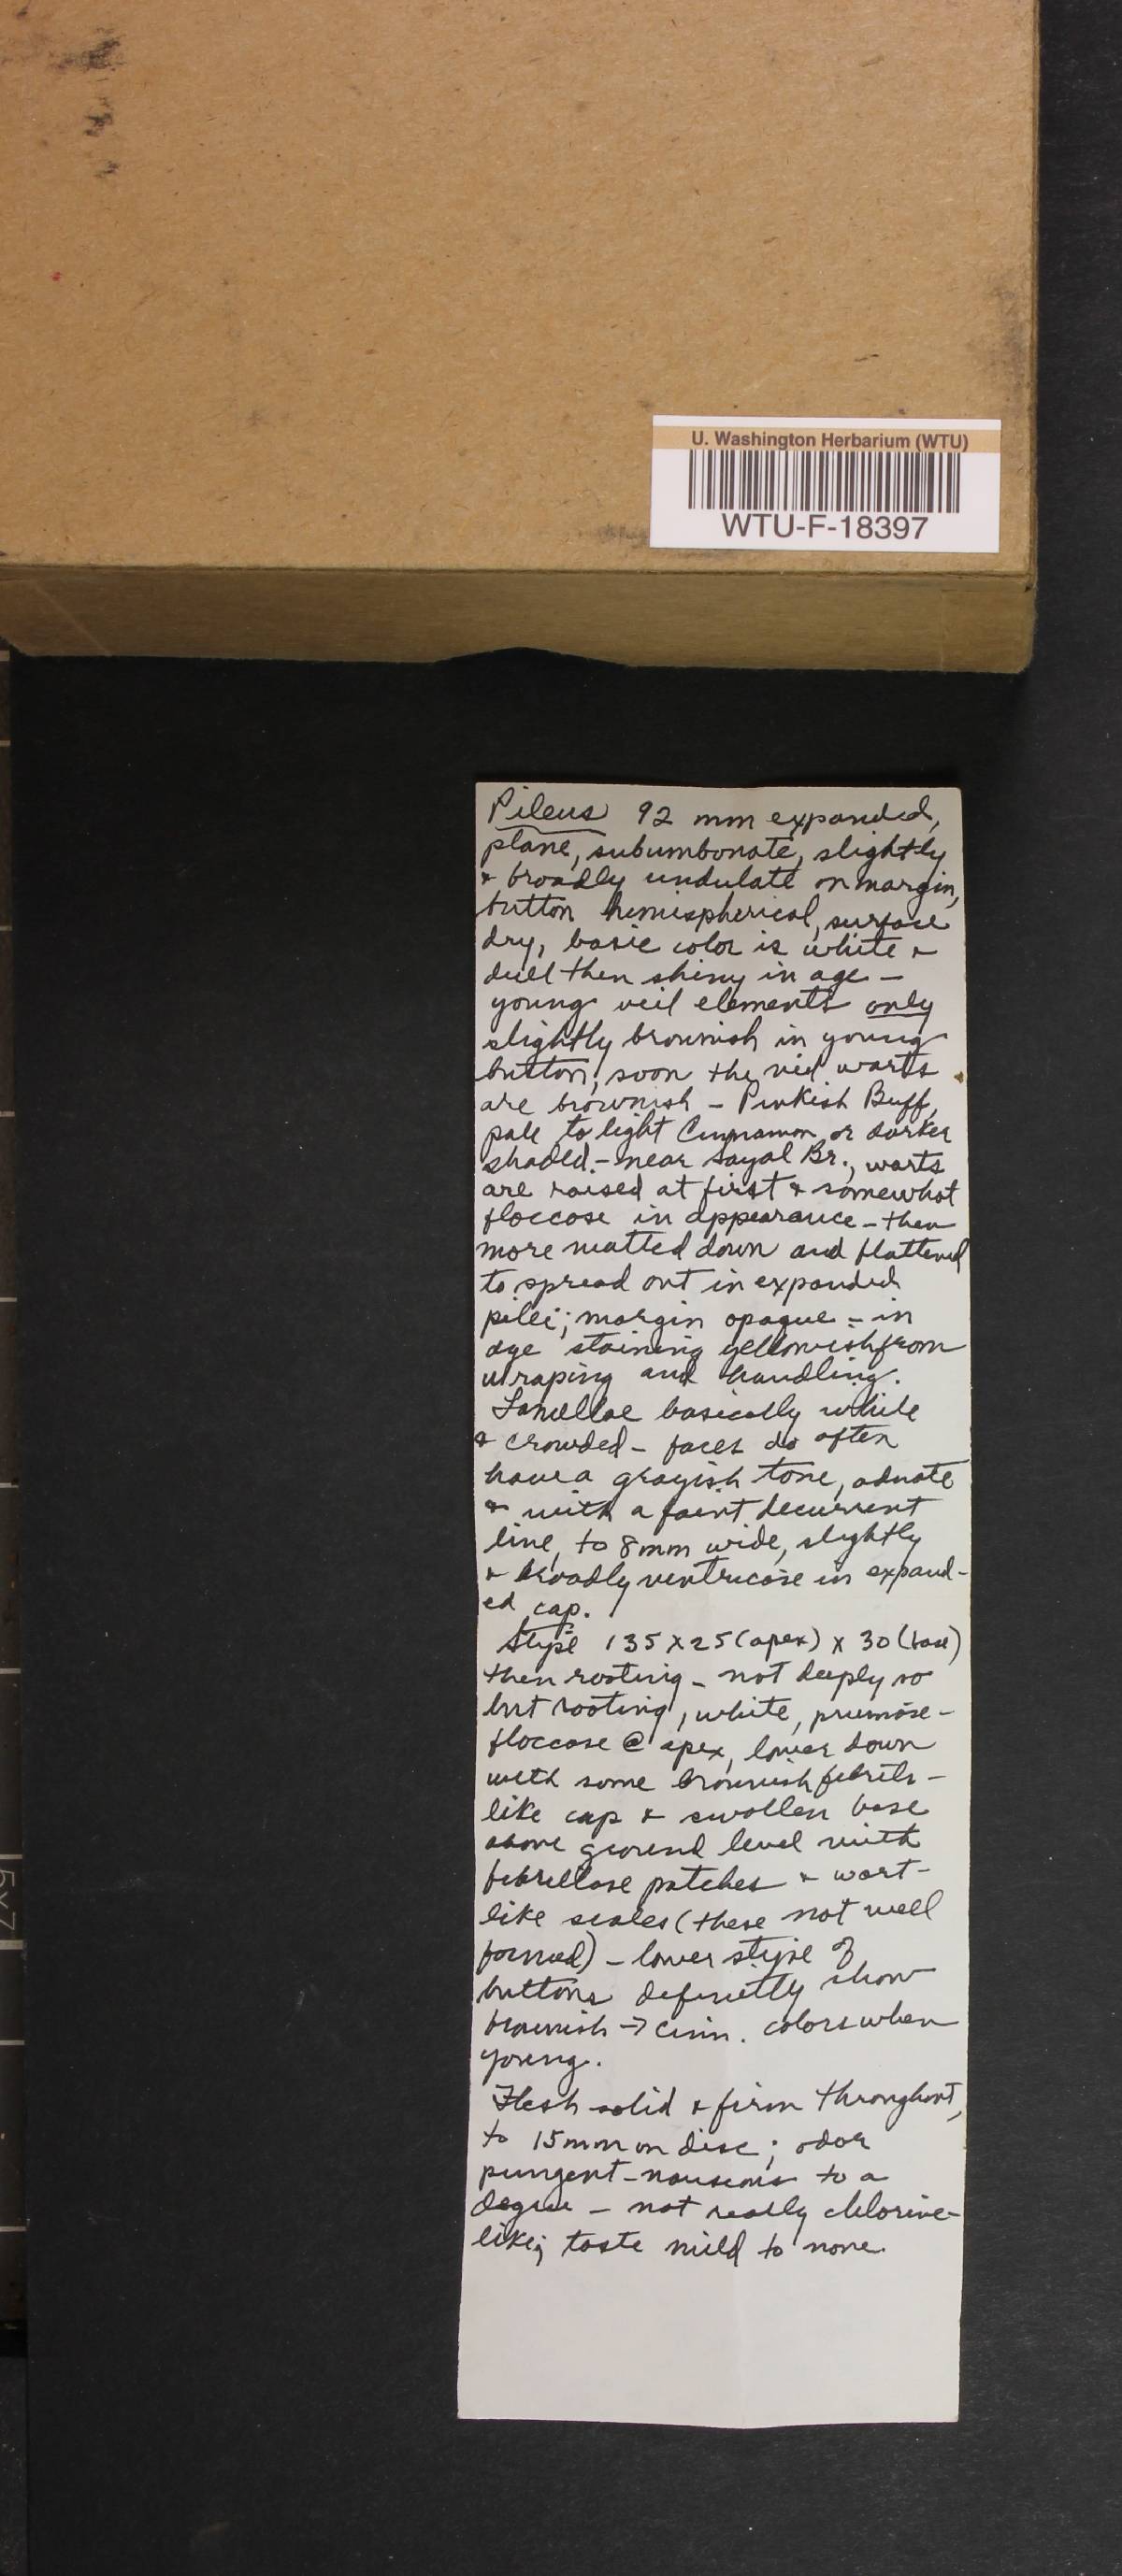 U. Washington Herbarium (WTU)
WTU-F-18397
Pileus 92 mm expanded,
plane, subumbonate, slightly
& broadly undulate on margin,
button hemispherical, surface
dry, basic color is white &
dull then shiny in age –
young veil elements only
slightly brownish in young
button; soon the veil warts
are brownish – Pinkish Buff,
pale to light Cinnamon or darker
shaded. – near Sayal Br., warts
are raised at first & somewhat
floccose in appearance – then
more matted down and flattened
to spread out in expanded
pilei; margin opaque – in
age staining yellowish from
wraping and handling.
Lamellae basically white
& crowded – faces do often
have a grayish tone, adnate
& with a faint decurrent
line, to 8mm wide, slightly
& broadly ventricose in expand-
ed cap.
Stipe 135 x 25 (apex) x 30 (base)
then rooting – not deeply so
but rooting, white, pruinose-
floccose @ apex, lower down
with some brownish fibrils –
like cap & swollen base
above ground level with
fibrillose patches & wart-
like scales (these not well
formed) – lower stipe of
buttons definetly show
brownish → cinn. colors when
young.
Flesh solid & firm throughout,
to 15mm on disc; odor
pungent – nauseous to a
degree – not really chlorine-
like; taste mild to none.
5x7